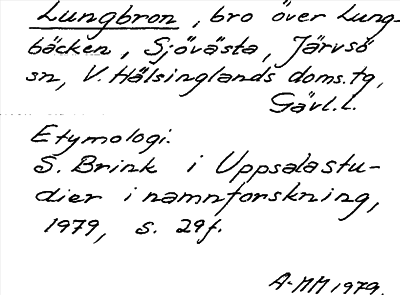 Lungbron, bro över Lung-
bäcken, Sjövästa, Järvsö
sn, V. Hälsinglands doms.tg,
Gävl.l.
Etymologi:
S. Brink i Uppsalastu-
dier i namnforskning,
1979, s. 29f.
A-MM 1979.